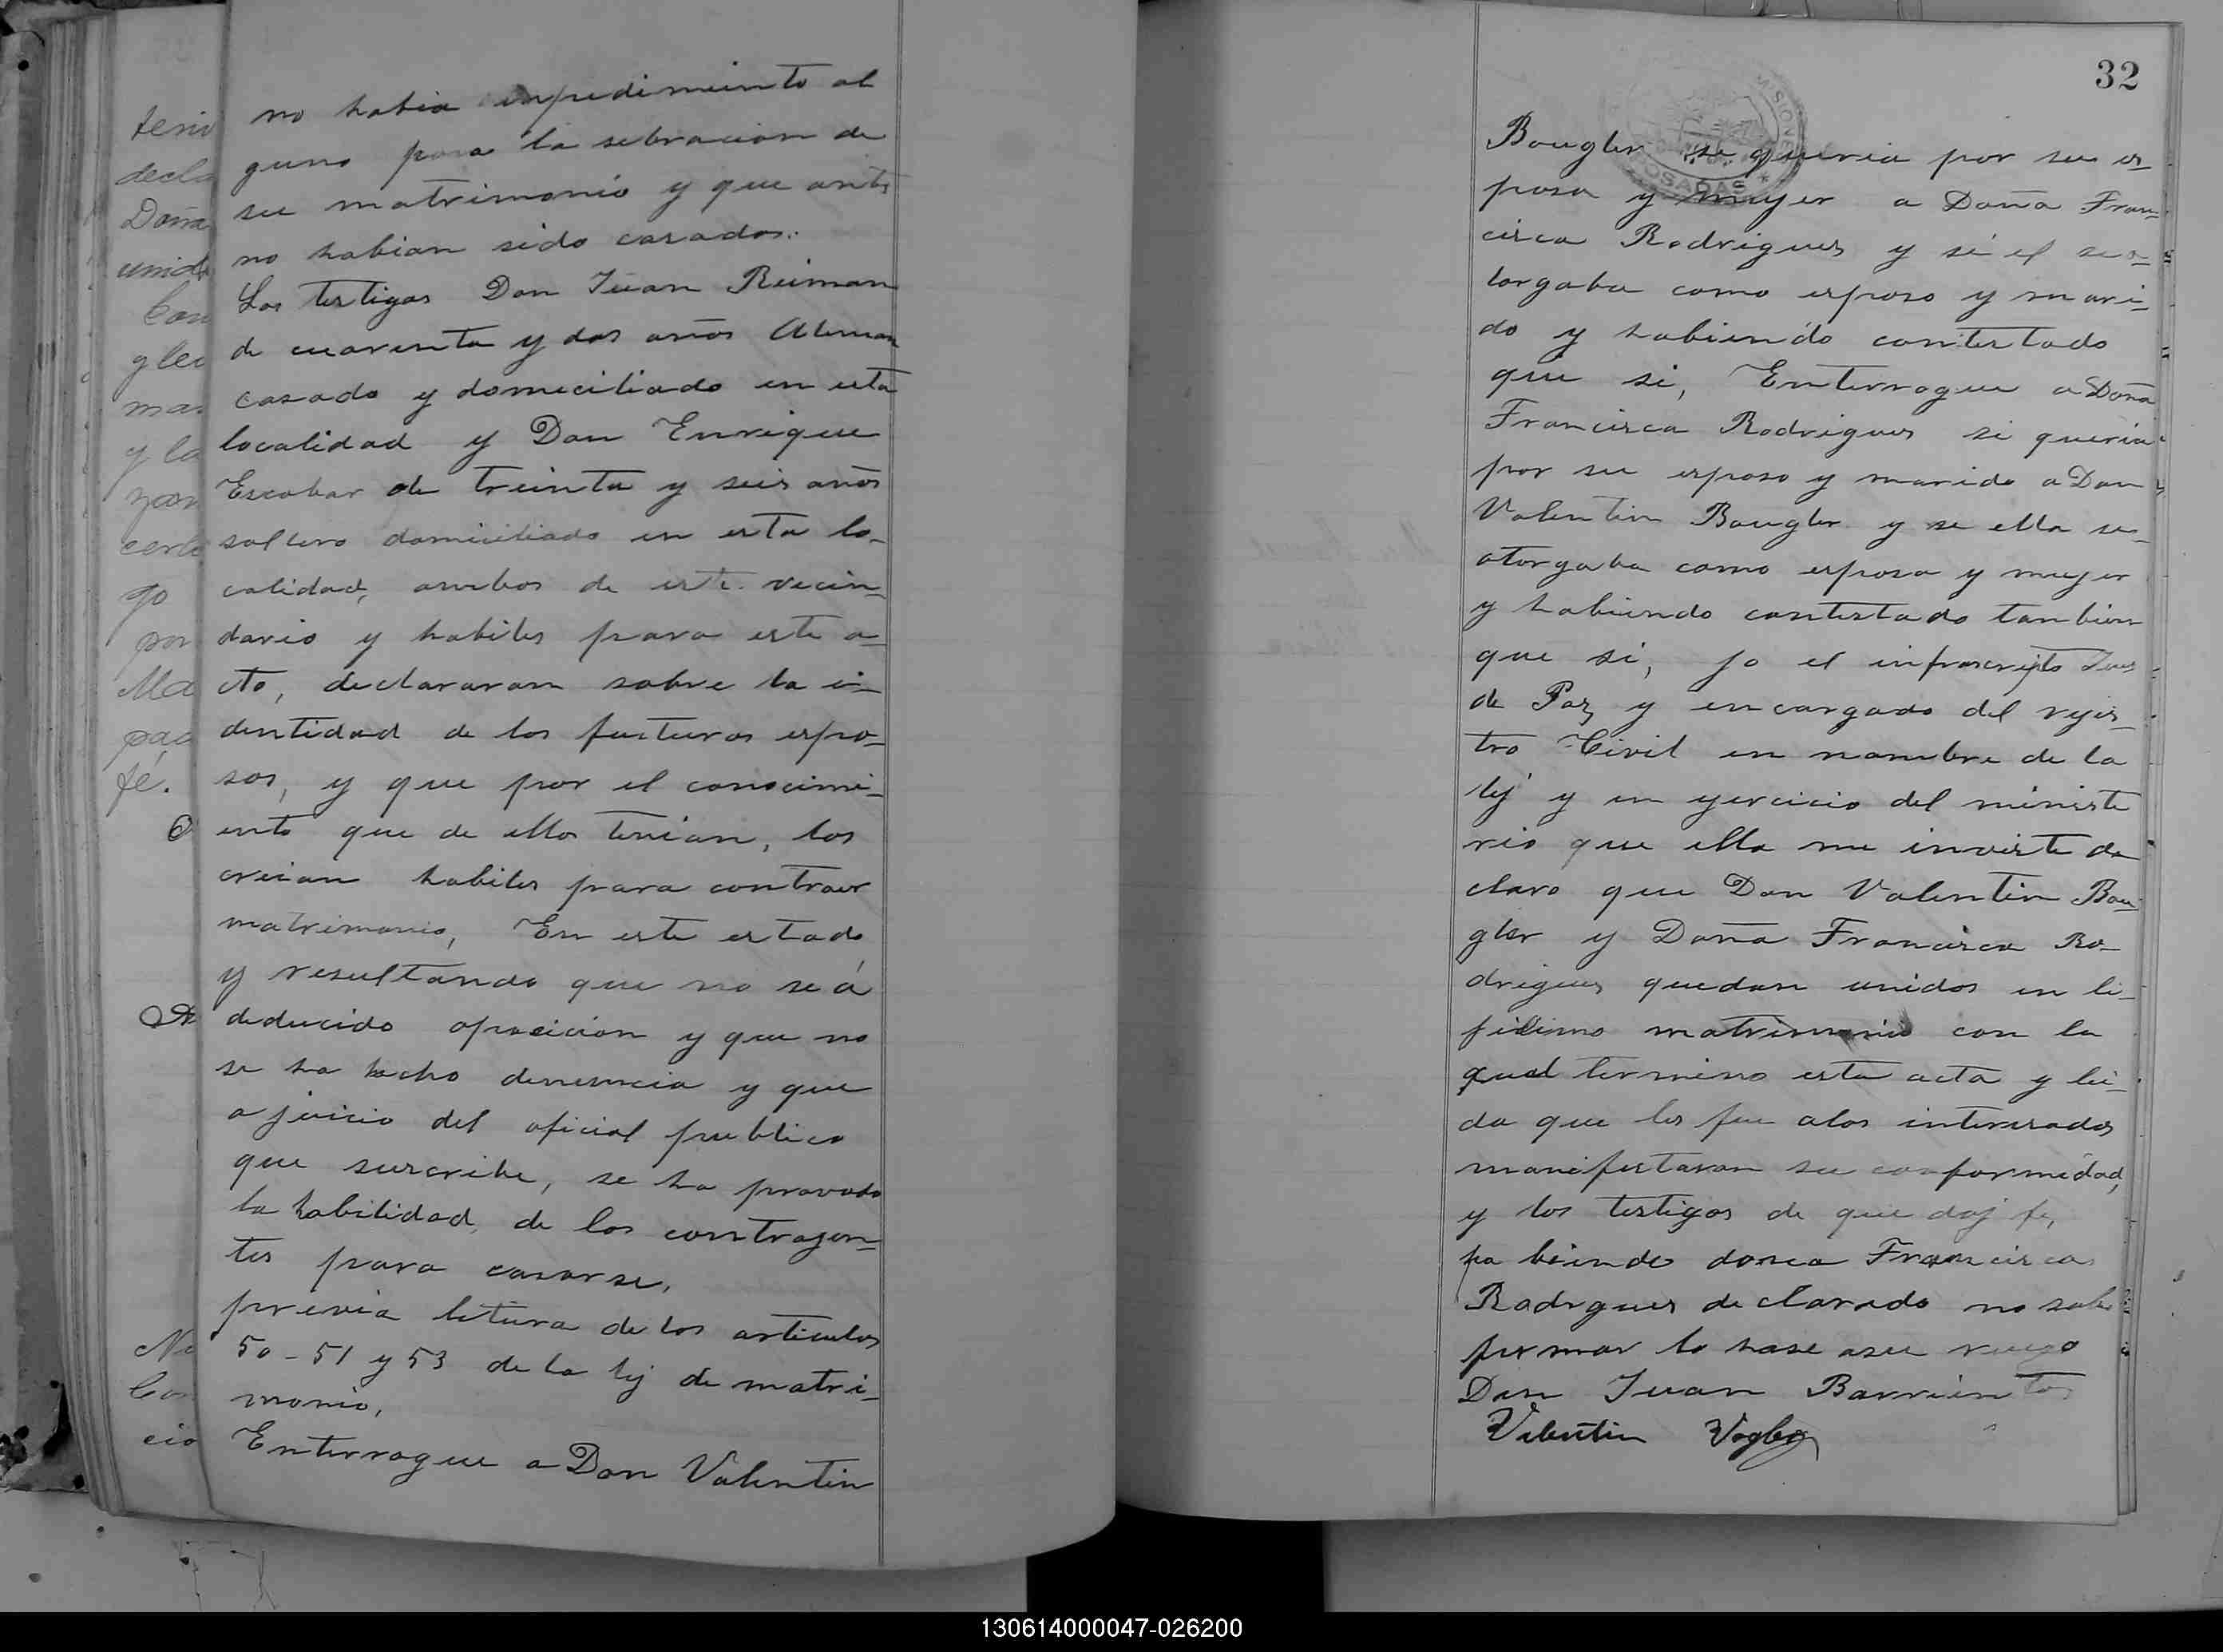 teni
decla
Doña
unid
Con
gler
mar
y la
zon
cert
go
por
Ma
pag
fé.
Ne
Con
cio
no habia impedimiento al
guno para la sebracion de
su matrimonio y que antes
no habian sido casados.
Los testigos Don Juan Reiman
de cuarenta y dos años Aleman
casado y domiciliado en esta
localidad y Don Enrique
Escobar de treinta y seis años
soltero domiciliado en esta lo-
calidad, ambos de este vecin-
dario y habiles para este a-
cto, declararon sobre la i-
dentidad de los futuros espo-
sos, y que por el conocimi-
ento que de ellos tenian, los
creian habiles para contraer
matrimonio, En este estado
y resultando que no se á
deducido oposicion y que no
se ha hecho denuncia y que
a juicio del oficial publico
que suscribe, se ha provado
la habilidad de los contrayen-
tes para casarse,
previa letura de los articulos
50 - 51 y 53 de la ley de matri-
monio,
Enterrogue a Don Valentin
32
MISIONES
POSADAS
Bougler si queria por su es-
posa y mujer a Doña Fran-
cisca Rodrigues y si el se o-
torgaba como esposo y mari-
do y habiendo contestado
que si, Enterrogue a Doña
Francisca Rodrigues si queria
por su esposo y marido a Don
Valentin Bougler y se ella se
otorgaba como esposa y mujer
y habiendo contestado tanbien
que si, jo el infrascripto Jues
de Paz y encargado del rejis-
tro Civil en nombre de la
ley y en ejercicio del ministe
rio que ella me inviste de
claro que Don Valentin Bou-
gler y Doña Francisca Ro-
drigues quedan unidos en li-
jitimo matrimonio con la
qual termino esta acta y lei-
da que les fue a los interesados
manifestaron su conformidad,
y los testigos de que doy fe,
habiendo donea Francisca
Rodrgues declarado no saber
firmar lo hase asu ruego
Don Juan Barrientos
Valentin Vogler
130614000047-026200